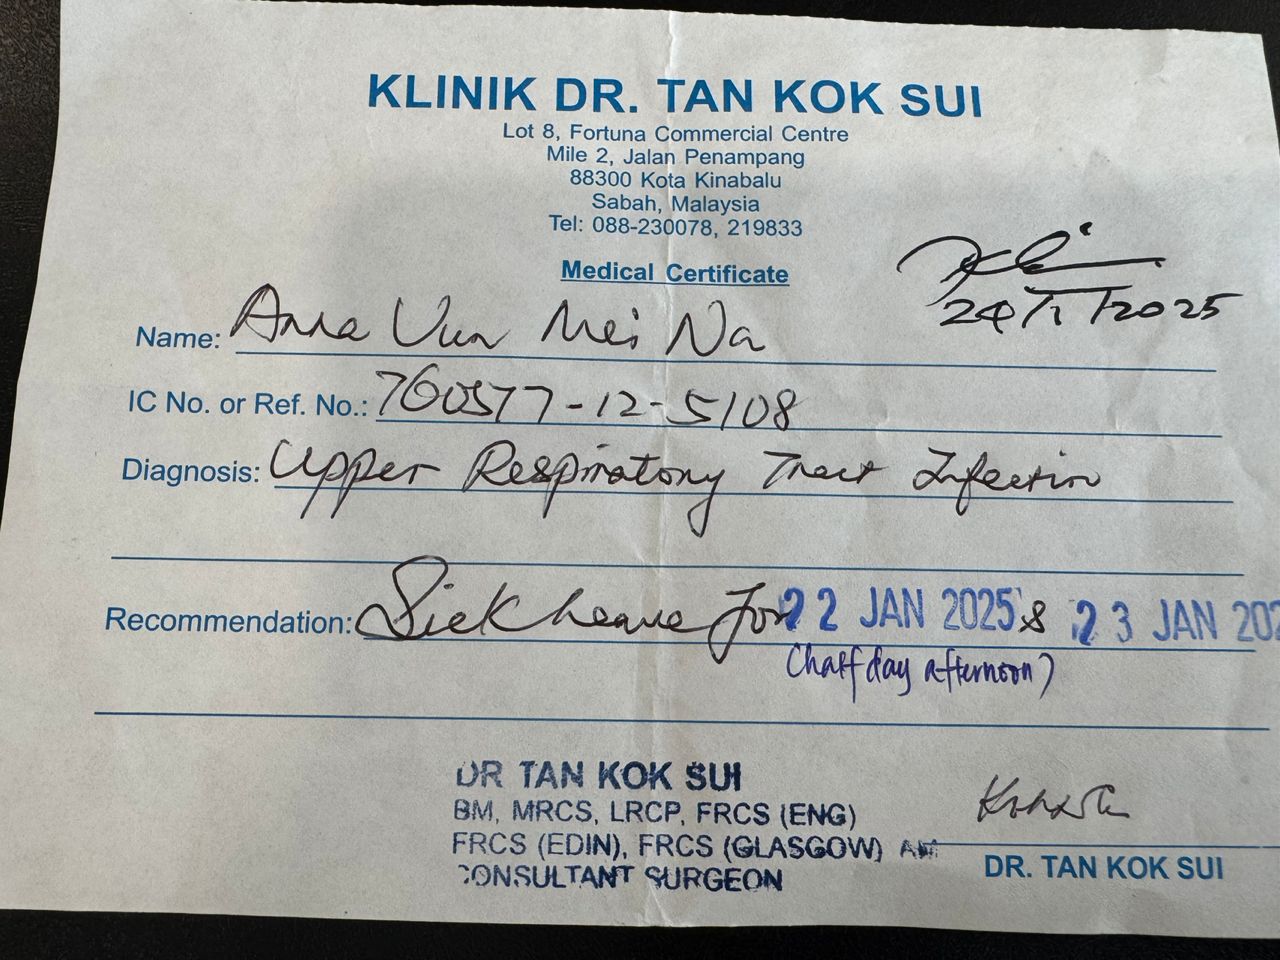 KLINIK DR. TAN KOK SUI
Lot 8, Fortuna Commercial Centre
Mile 2, Jalan Penampang
88300 Kota Kinabalu
Sabah, Malaysia
Tel: 088-230078, 219833
Medical Certificate
24/1/2025
Name: Anna Vun Mei Na
IC No. or Ref. No.: 760577-12-5108
Diagnosis: Upper Respiratory Tract Infection
Recommendation: Sick Leave for 22 JAN 2025 & 23 JAN 202
(half day afternoon)
DR TAN KOK SUI
BM, MRCS, LRCP, FRCS (ENG)
FRCS (EDIN), FRCS (GLASGOW)
CONSULTANT SURGEON
DR. TAN KOK SUI